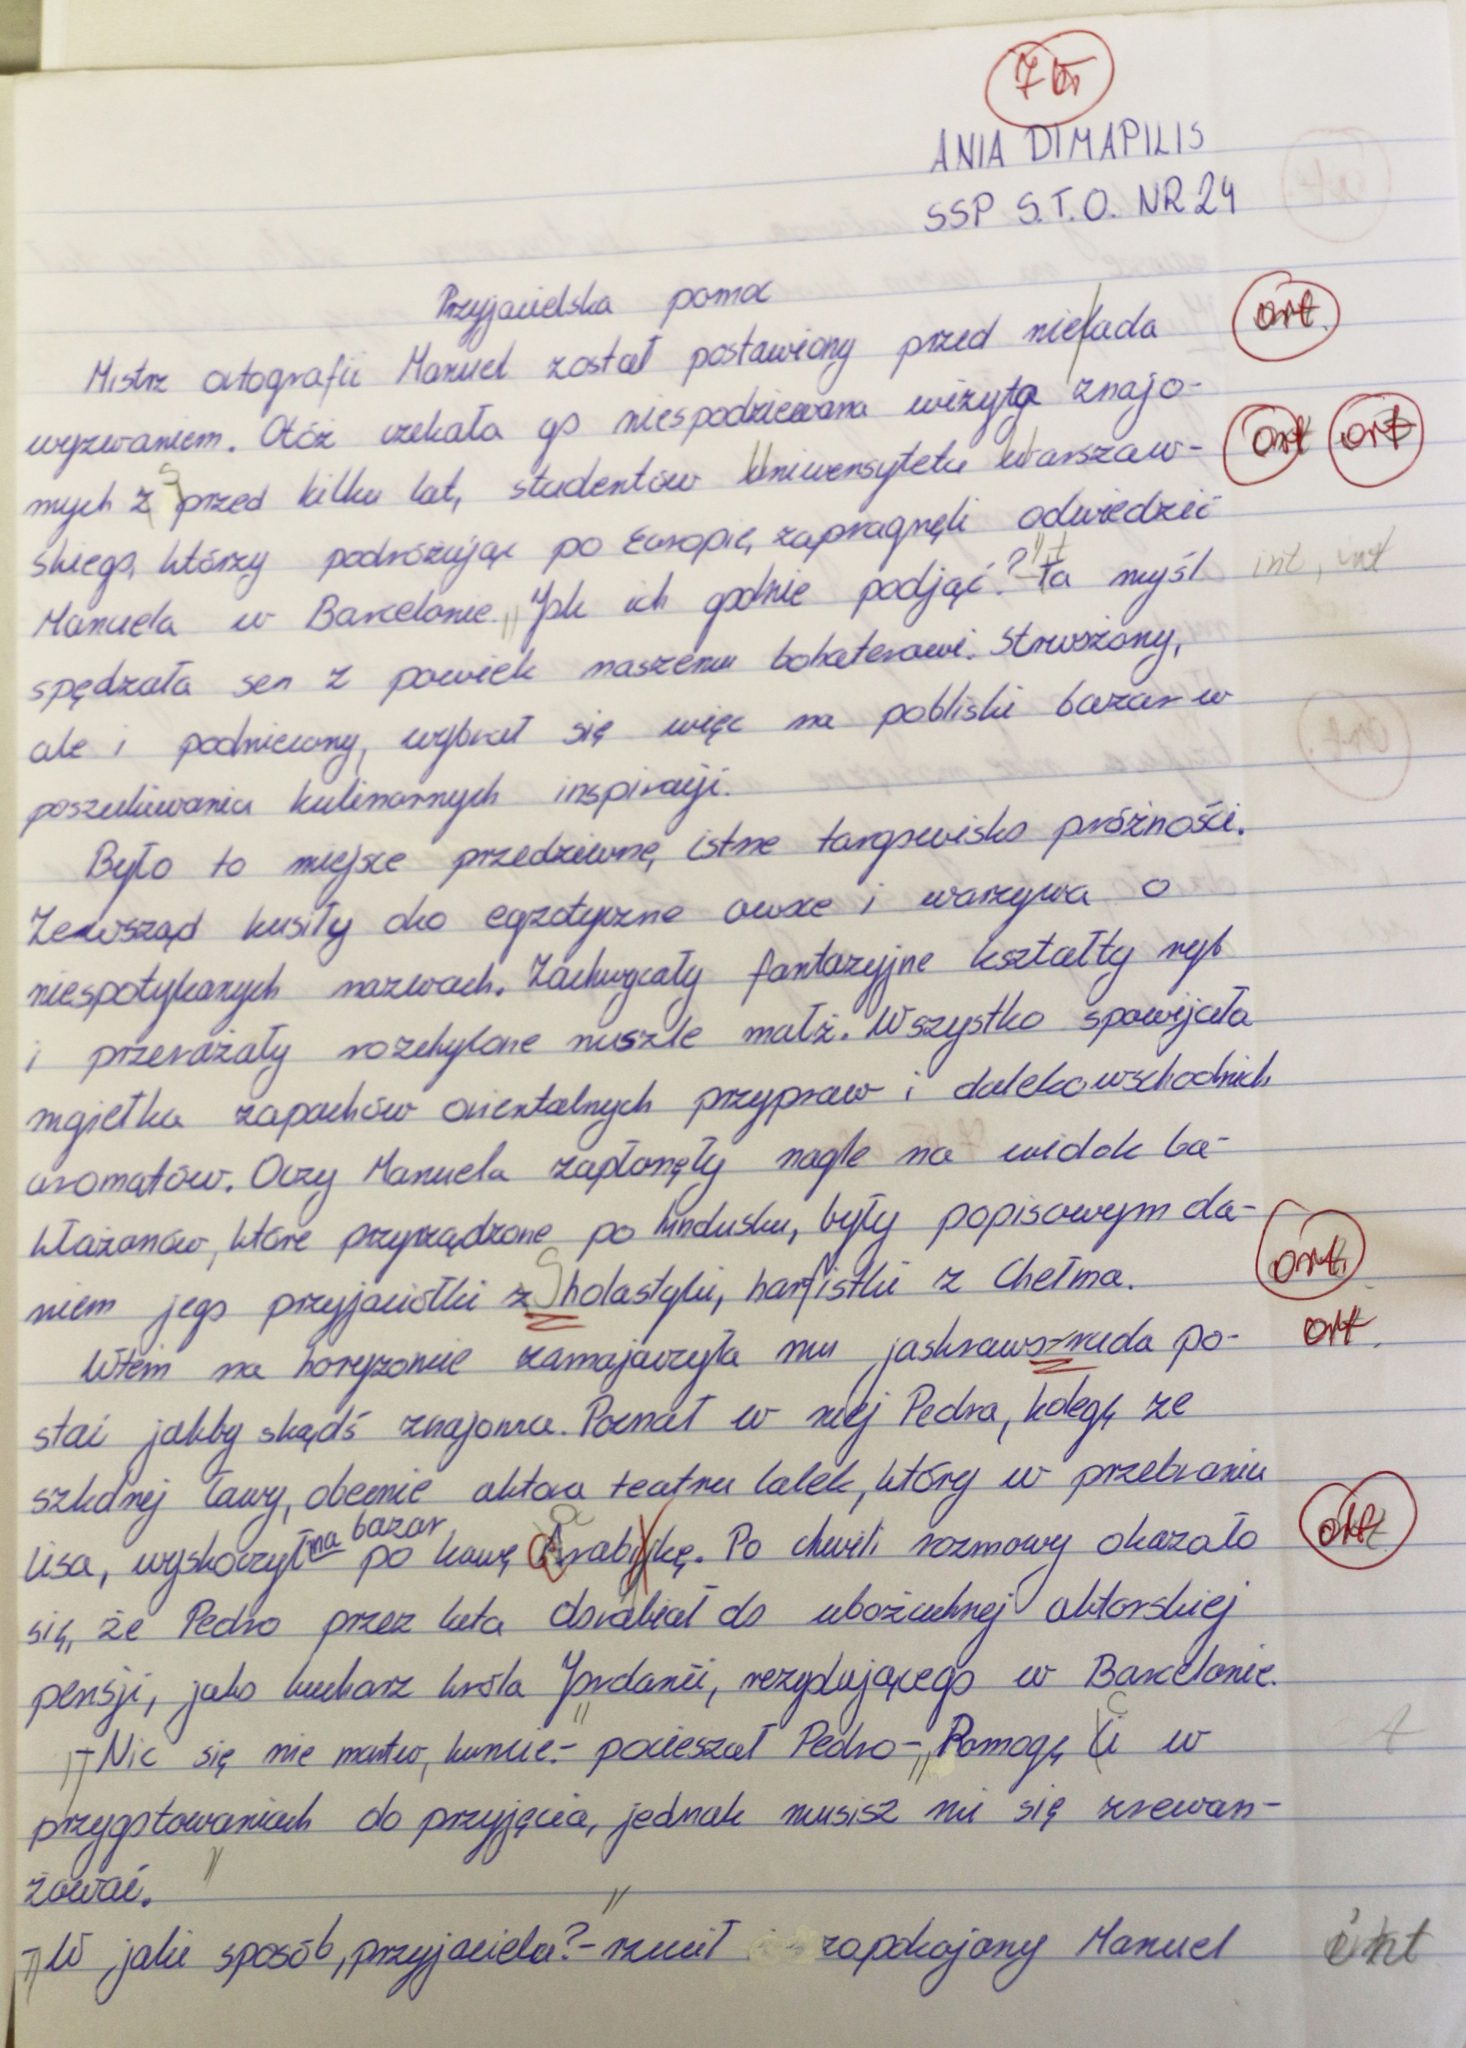 7 bł
ANIA DIMAPILIS
SSP S.T.O. NR 24
Przyjacielska pomoc
Mistrz ortografii Manuel został postawiony przed nielada ort.
wyzwaniem. Otóż czekała go niespodziewana wizyta znajo-
mych z przed kilku lat, studentów Uniwersytetu Warszaw- ort ort
skiego, którzy podróżując po Europie, zapragnęli odwiedzić
Manuela w Barcelonie. "Jak ich godnie podjąć?" Ta myśl int, int
spędzała sen z powiek naszemu bohaterowi. Strwożony,
ale i podniecony, wybrał się więc na pobliski bazar w
poszukiwaniu kulinarnych inspiracji.
Było to miejsce przedziwne, istne targowisko próżności.
Zewsząd kusiły oko egzotyczne owoce i warzywa o
niespotykanych nazwach. Zachwycały fantazyjne kształty ryb
i przerażały rozchylone muszle małż. Wszystko spowijała
mgiełka zapachów orientalnych przypraw i dalekowschodnich
aromatów. Oczy Manuela zapłonęły nagle na widok ba-
kłażanów, które przyrządzone po hindusku, były popisowym da-
niem jego przyjaciółki z Sholastyki, harfistki z Chełma. ort.
Wtem na horyzoncie zamajaczyła mu jaskraworuda po- ort.
stać jakby skądś znajoma. Poznał w niej Pedra, kolegę ze
szkolnej ławy, obecnie aktora teatru lalek, który w przebraniu
lisa, wyskoczył na bazar po kawę Arabijkę. Po chwili rozmowy okazało ort
się, że Pedro przez lata dorabiał do uboźuchnej aktorskiej
pensji, jako kucharz króla Jordanii, rezydującego w Barcelonie.
"- Nic się nie martw, kumcie."- pocieszał Pedro-"Pomogę Ci w
przygotowaniach do przyjęcia, jednak musisz mi się zrewan-
żować."
"- W jaki sposób, przyjacielu?"- rzucił zapokojony Manuel int